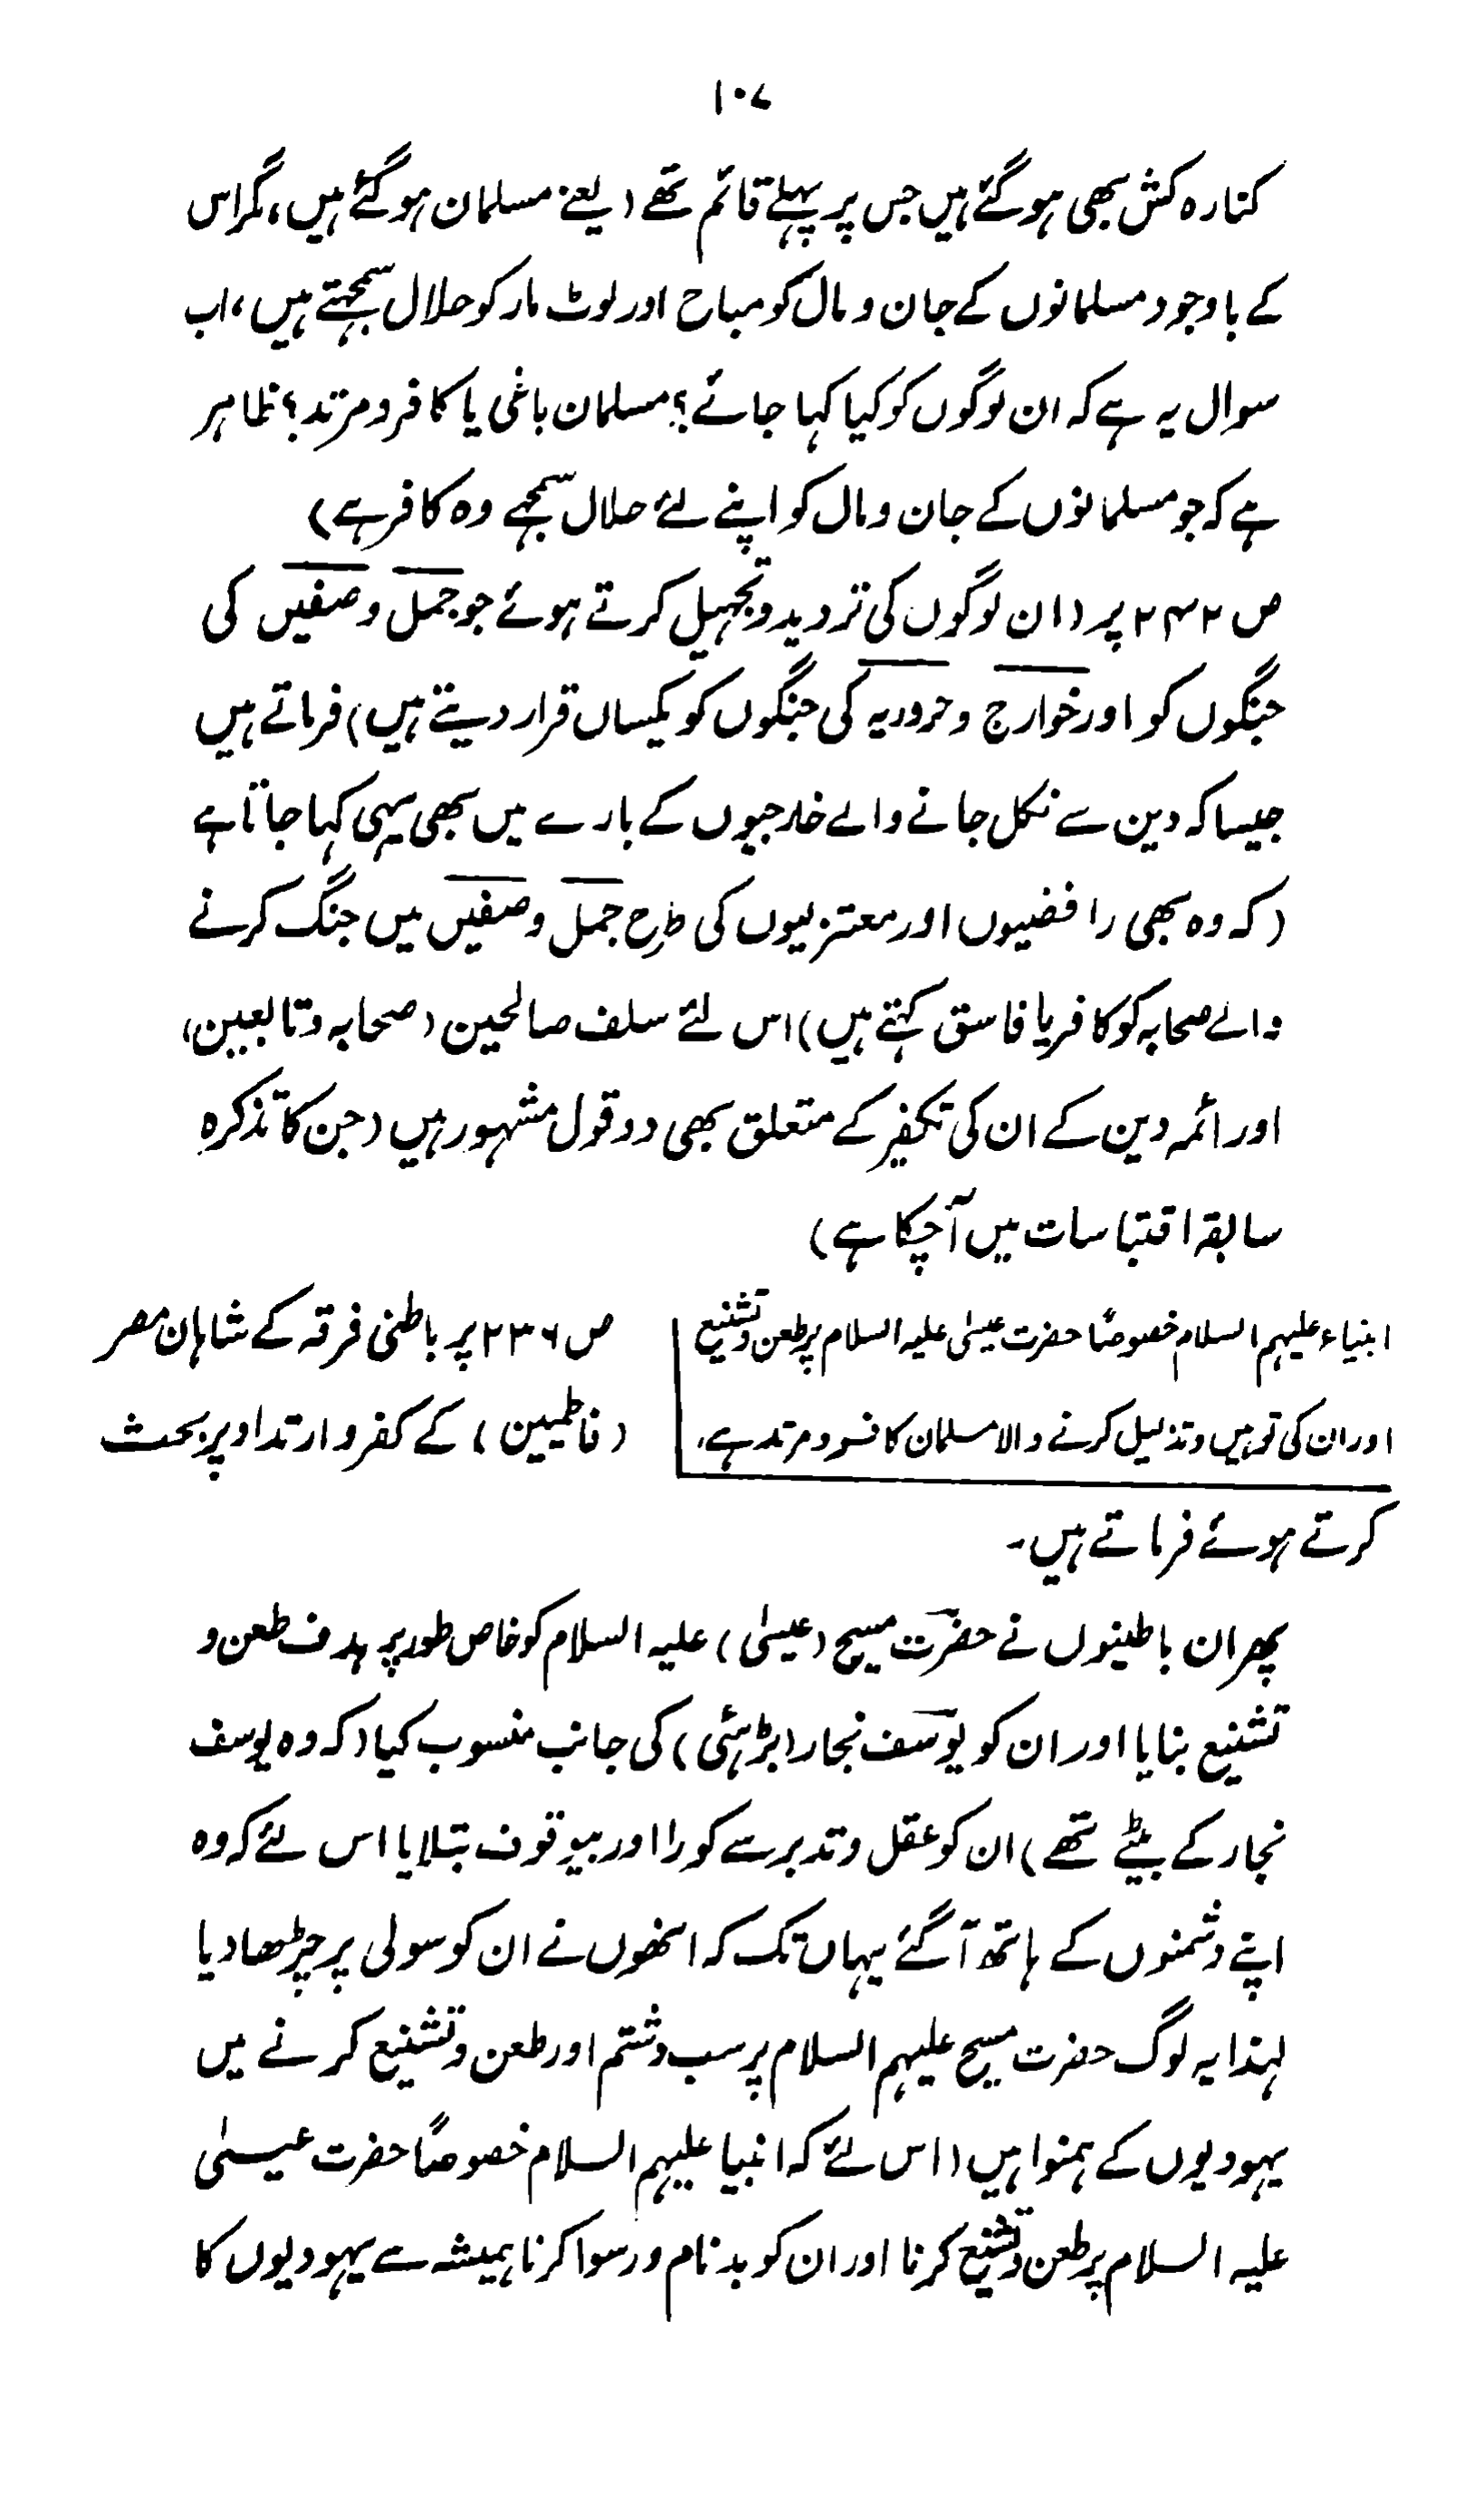 ۱۰۷
کنارہ کش بھی ہوگئے ہیں جس پر پہلے قائم تھے (یعنے مسلمان ہوگئے ہیں، مگر اس
کے باوجود مسلمانوں کے جان و مال کو مباح اور لوٹ مار کو حلال سمجھتے ہیں، اب
سوال یہ ہے کہ ان لوگوں کو کیا کہا جائے؟ مسلمان باغی یا کافر و مرتد؟ ظاہر
ہے کہ جو مسلمانوں کے جان و مال کو اپنے لئے حلال سمجھے وہ کافر ہے)
ص ۲۴۲ پر (ان لوگوں کی تردید و تجہیل کرتے ہوئے جو جمل و صفیں کی
جنگوں کو اور خوارج و حروریہ کی جنگوں کو یکساں قرار دیتے ہیں) فرماتے ہیں
جیسا کہ دین سے نکل جانے والے خارجیوں کے بارے میں بھی یہی کہا جاتا ہے
(کہ وہ بھی رافضیوں اور معتزلیوں کی طرح جمل و صفیں میں جنگ کرنے
والے صحابہ کو کافر یا فاسق کہتے ہیں) اس لئے سلف صالحین (صحابہ و تابعین)
اور ائمہ دین کے ان کی تکفیر کے متعلق بھی دو قول مشہور ہیں (جن کا تذکرہ
سابقہ اقتباسات میں آچکا ہے)
انبیاء علیہم السلام خصوصًا حضرت عیسیٰ علیہ السلام پر طعن و تشنیع
اور ان کی توہین و تذلیل کرنے والا مسلمان کافر و مرتد ہے،
ص ۲۳۶ پر باطنی فرقہ کے شاہان مصر
(فاطمیین) کے کفر و ارتداد پر بحث
کرتے ہوئے فرماتے ہیں۔
پھر ان باطینوں نے حضرت مسیح (عیسیٰ) علیہ السلام کو خاص طور پر ہدف طعن و
تشنیع بنایا اور ان کو یوسف نجار (بڑہئی) کی جانب منسوب کیا (کہ وہ یوسف
نجار کے بیٹے تھے) ان کو عقل و تدبر سے کورا اور بیوقوف بتلایا اس لئے کہ وہ
اپنے دشمنوں کے ہاتھ آگئے یہاں تک کہ انھوں نے ان کو سولی پر چڑھا دیا
لہذا یہ لوگ حضرت مسیح علیہم السلام پر سب و شتم اور طعن و تشنیع کرنے میں
یہودیوں کے ہمنوا ہیں (اس لئے کہ انبیا علیہم السلام خصوصًا حضرت عیسیٰ
علیہ السلام پر طعن و تشنیع کرنا اور ان کو بدنام و رسوا کرنا ہمیشہ سے یہودیوں کا